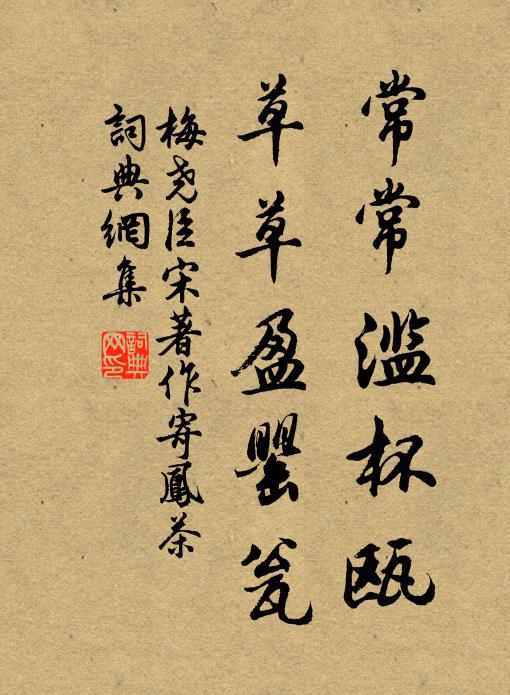 常常滥杯瓯
草草盈罂瓮
梅尧臣宋著作寄鳳茶
詞典網集
詞典网印